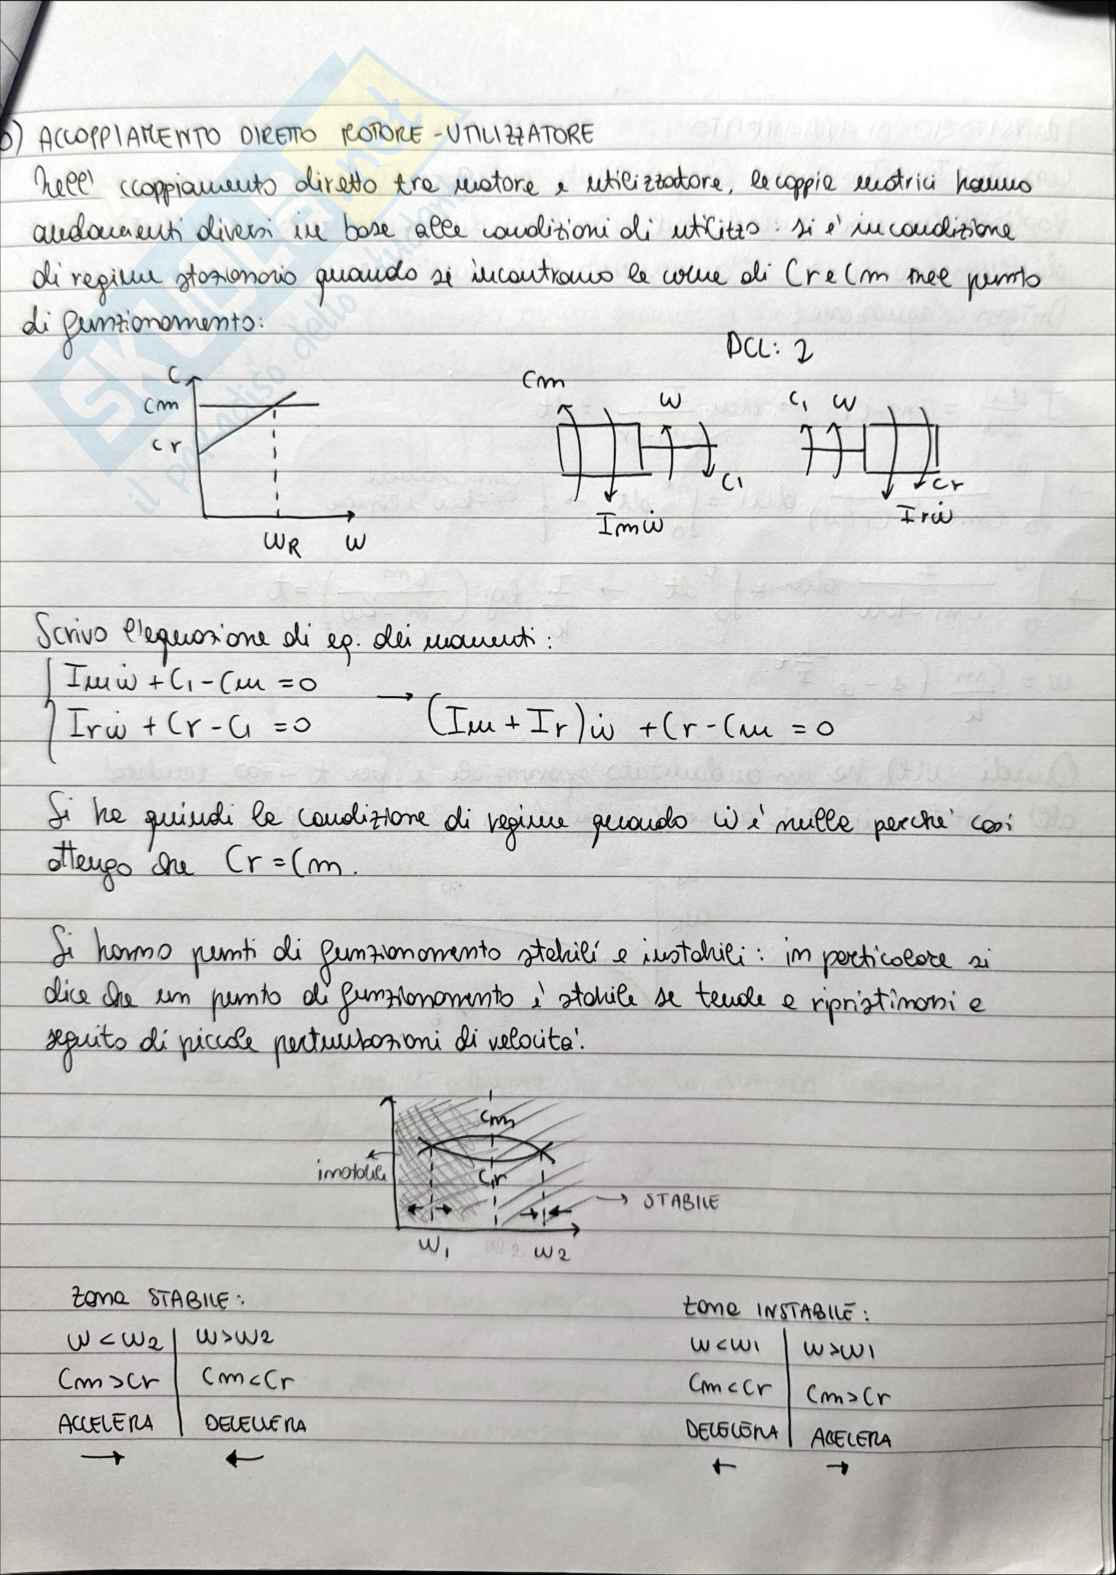 ) ACCOPPIAMENTO DIRETTO ROTORE-UTILIZZATORE
Nell' ccoppiamento diretto tra motore e utilizzatore, le coppie motrici hanno
andamenti diversi in base alle condizioni di utilizzo: si è in condizione
di regime stazionario quando si incontrano le curve di Cr e Cm nel punto
di funzionamento:
DCL: 2
C
Cm
Cr
ωR ω
Cm
ω
C1
Imω̇
C1 ω
Cr
Irω̇
Scrivo l'equazione di eq. dei momenti:
Imω̇ + C1 - Cm = 0
Irω̇ + Cr - C1 = 0 → (Im + Ir)ω̇ + Cr - Cm = 0
Si ha quindi la condizione di regime quando ω̇ è nulla perché così
ottengo che Cr = Cm.
Si hanno punti di funzionamento stabili e instabili: in particolare si
dice che un punto di funzionamento è stabile se tende a ripristinarsi a
seguito di piccole perturbazioni di velocità.
Cm
Cr
STABILE
ω1 ω2
zona STABILE:
ω < ω2 | ω > ω2
Cm > Cr | Cm < Cr
ACCELERA | DECELLERA
→ ←
zona INSTABILE:
ω < ω1 | ω > ω1
Cm < Cr | Cm > Cr
DECELERA | ACELERA
← →
SKUOLA.net
il paradiso dello studente